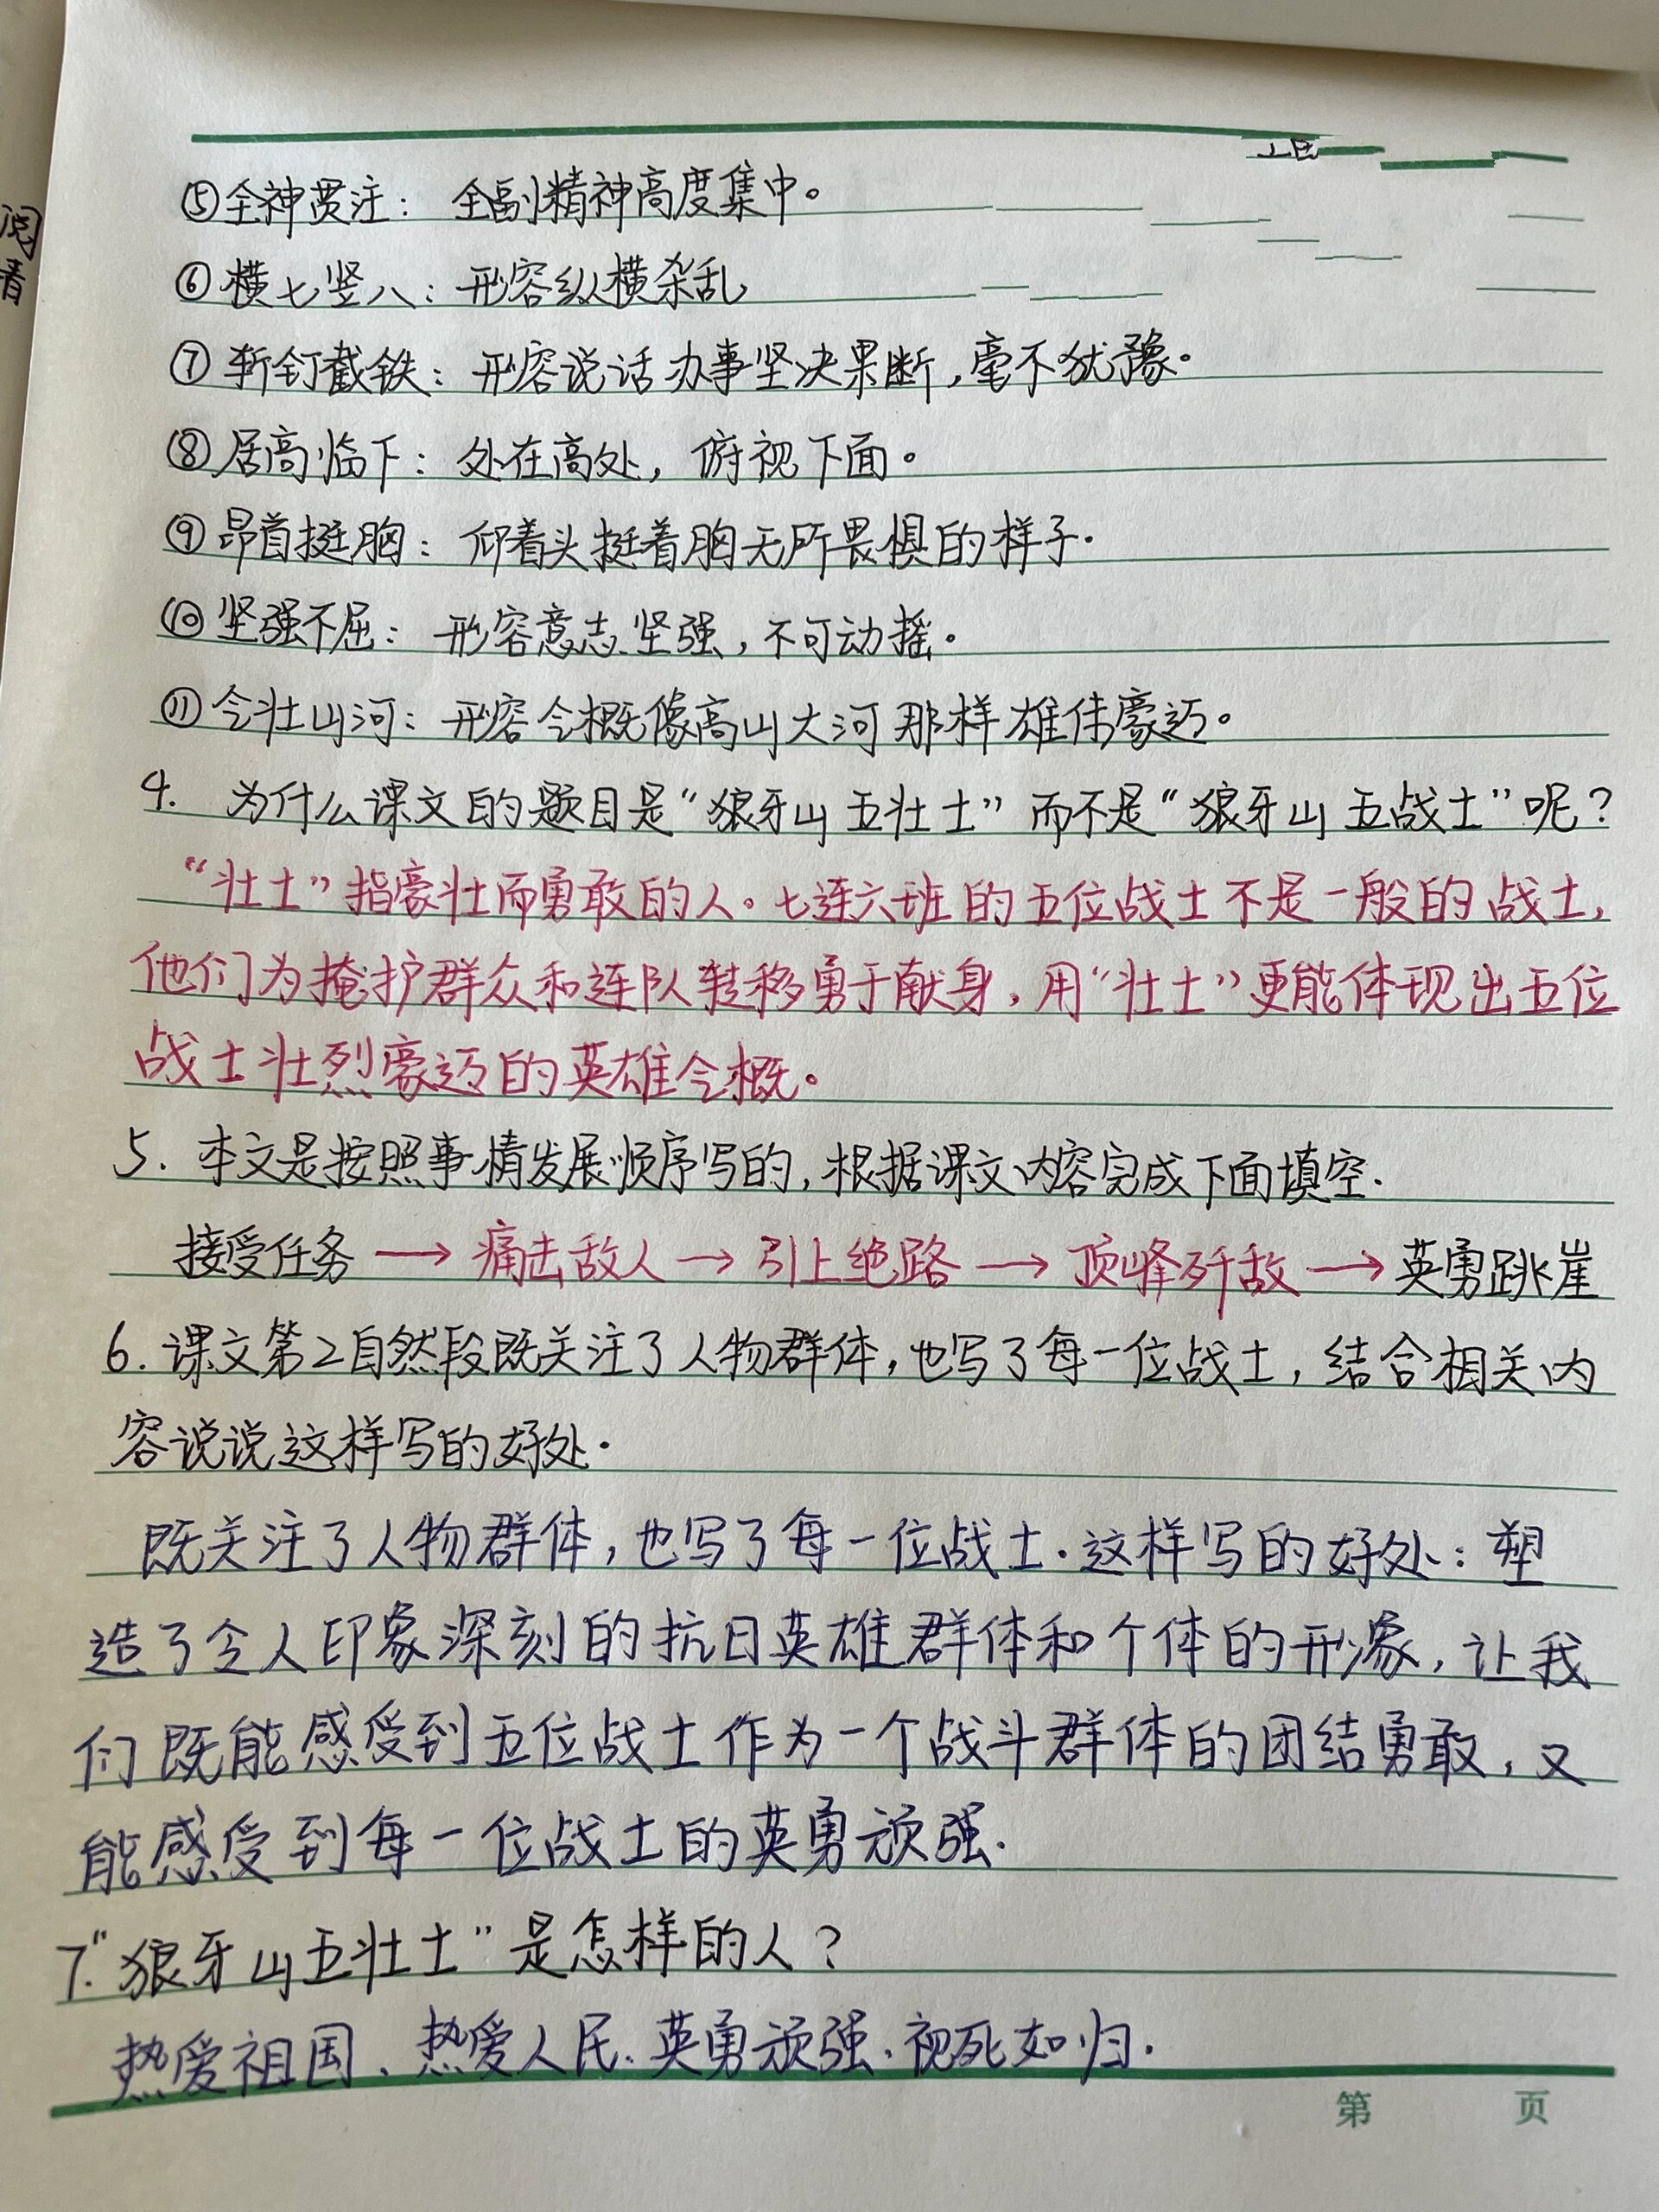 ⑤全神贯注：全副精神高度集中。
⑥横七竖八：形容纵横杂乱
⑦斩钉截铁：形容说话办事坚决果断，毫不犹豫。
⑧居高临下：处在高处，俯视下面。
⑨昂首挺胸：仰着头挺着胸无所畏惧的样子.
⑩坚强不屈：形容意志坚强，不可动摇。
⑪气壮山河：形容气概像高山大河那样雄伟豪迈。
4. 为什么课文的题目是“狼牙山五壮士”而不是“狼牙山五战士”呢？
“壮士”指豪壮而勇敢的人。七连六班的五位战士不是一般的战士,
他们为掩护群众和连队转移勇于献身，用“壮士”更能体现出五位
战士壮烈豪迈的英雄气概。
5. 本文是按照事情发展顺序写的，根据课文内容完成下面填空.
接受任务→痛击敌人→引上绝路→顶峰歼敌→英勇跳崖
6. 课文第2自然段既关注了人物群体，也写了每一位战士，结合相关内
容说说这样写的好处.
既关注了人物群体，也写了每一位战士.这样写的好处：塑
造了令人印象深刻的抗日英雄群体和个体的形象，让我
们既能感受到五位战士作为一个战斗群体的团结勇敢，又
能感受到每一位战士的英勇顽强.
7.“狼牙山五壮士”是怎样的人？
热爱祖国、热爱人民、英勇顽强、视死如归.
第 页